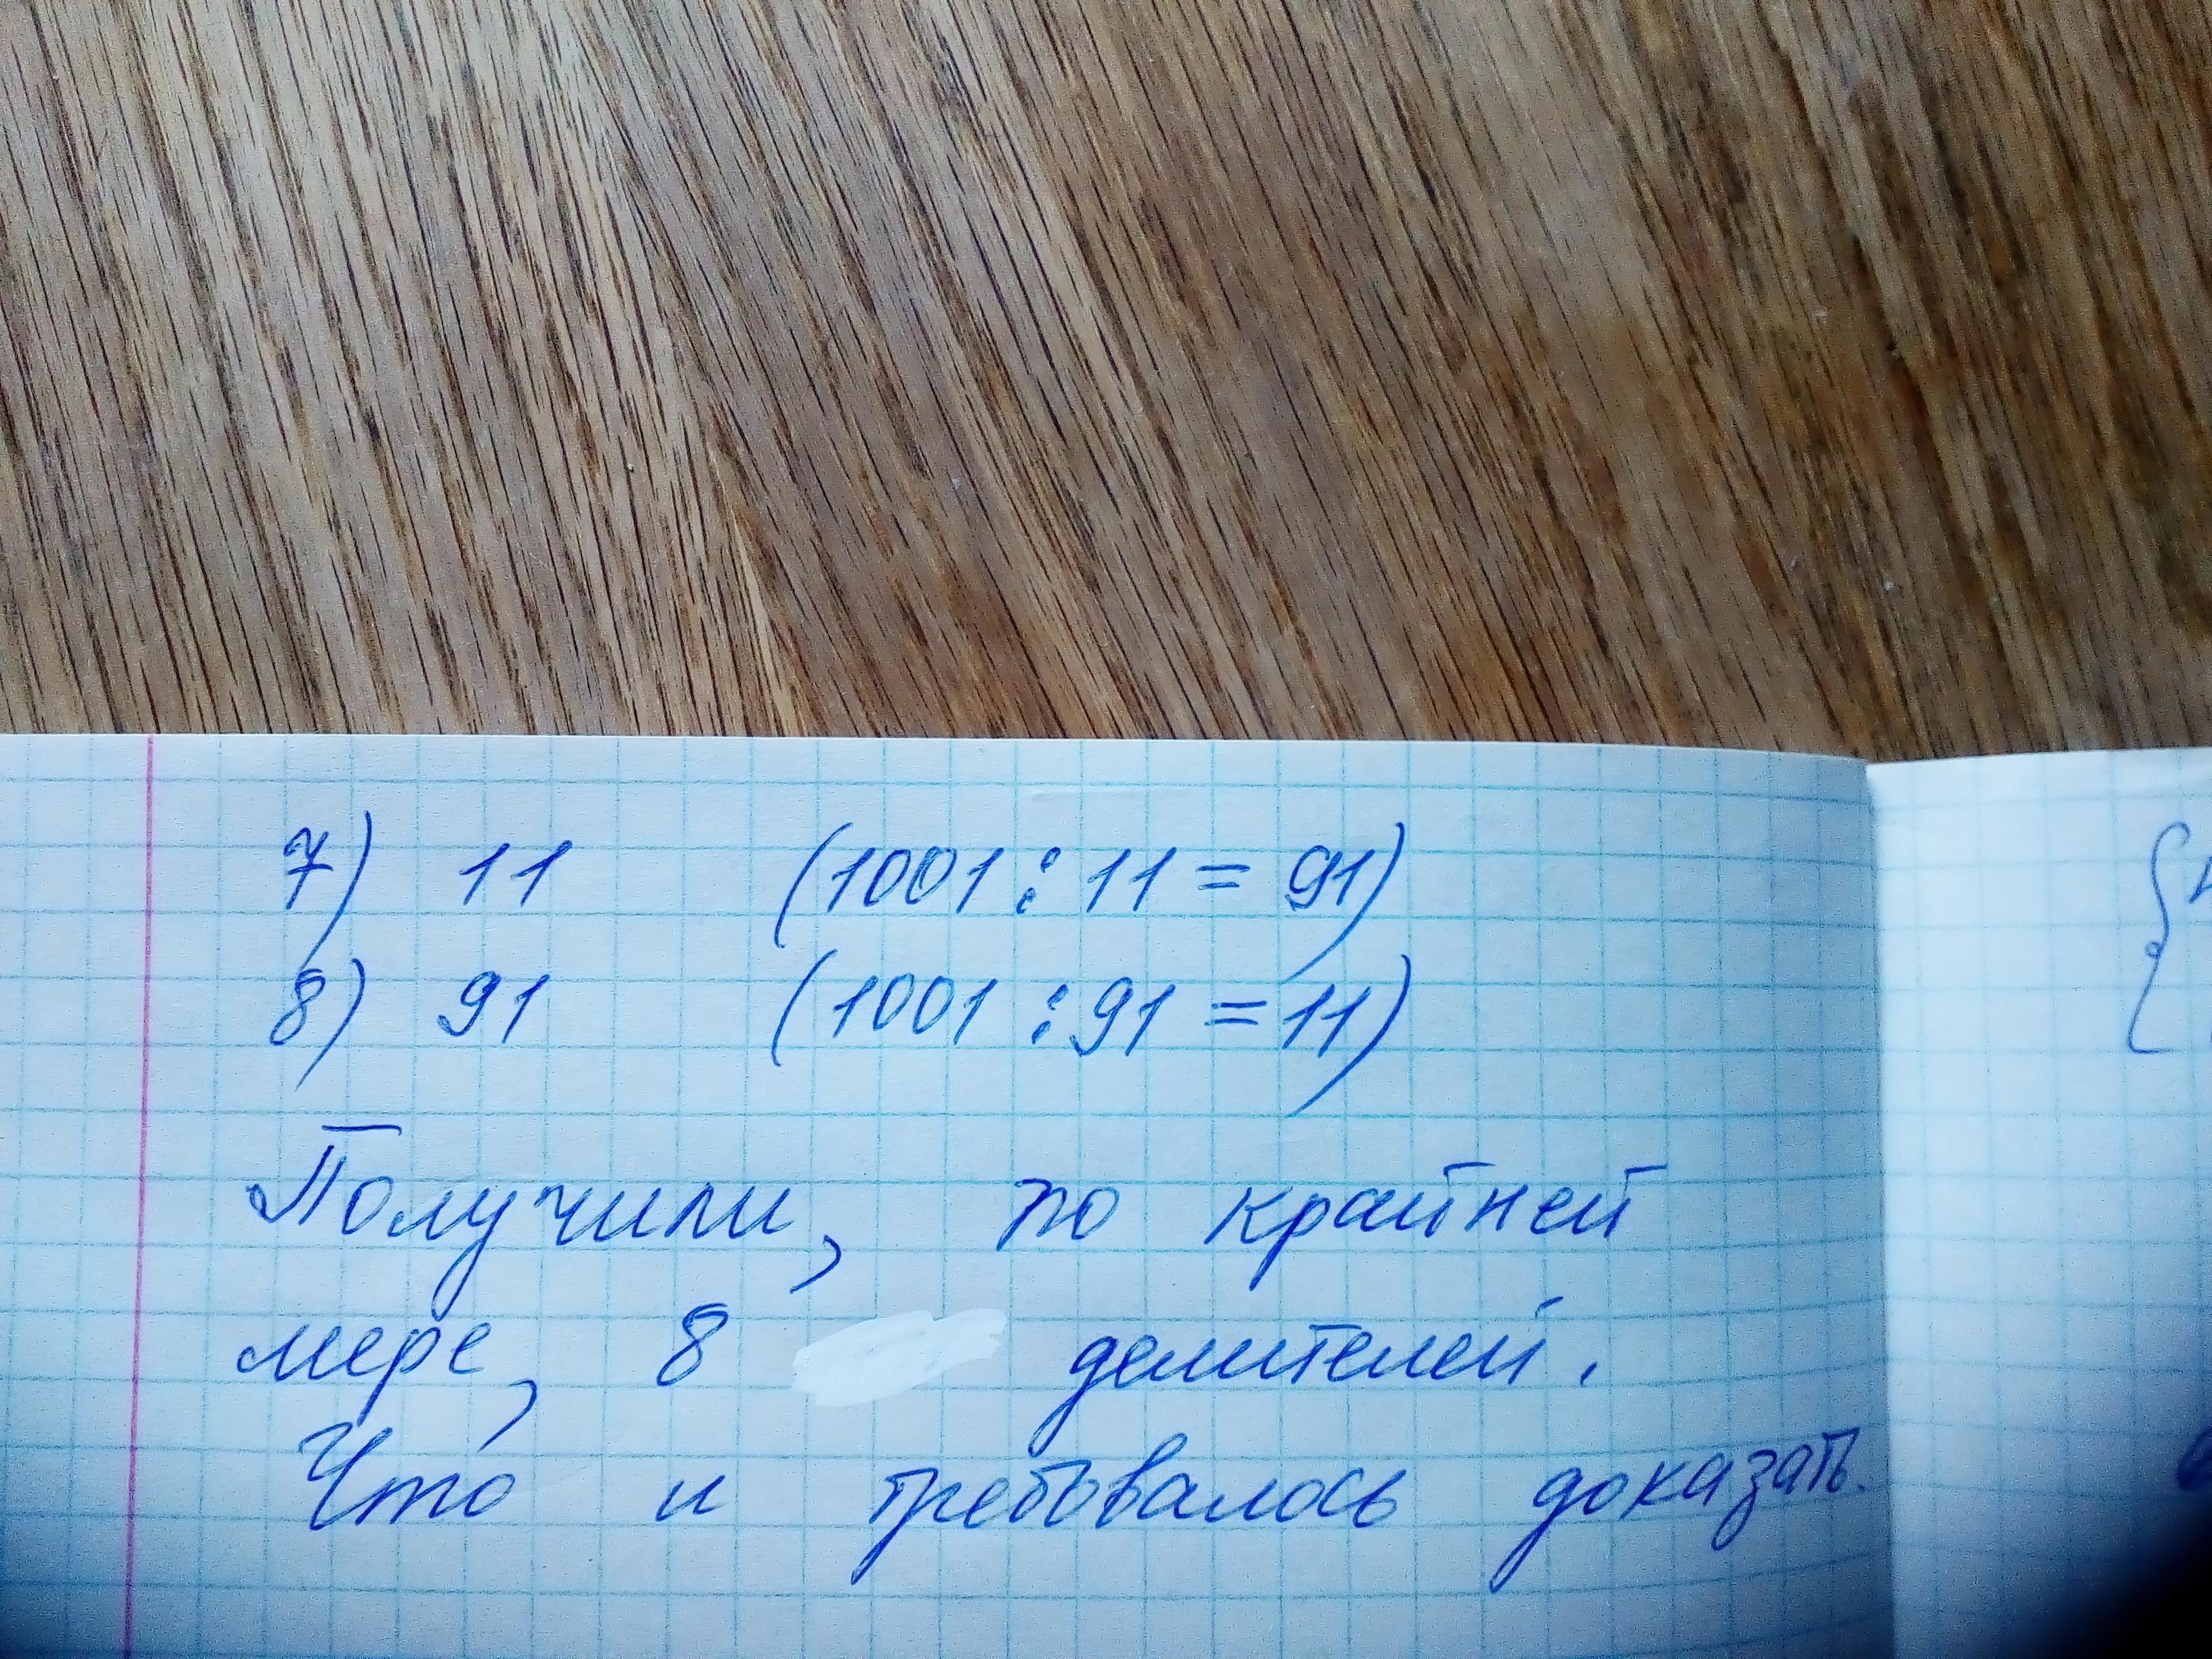 7) 11 (1001 : 11 = 91)
8) 91 (1001 : 91 = 11)
Получили, по крайней
мере, 8 делителей.
Что и требовалось доказать.